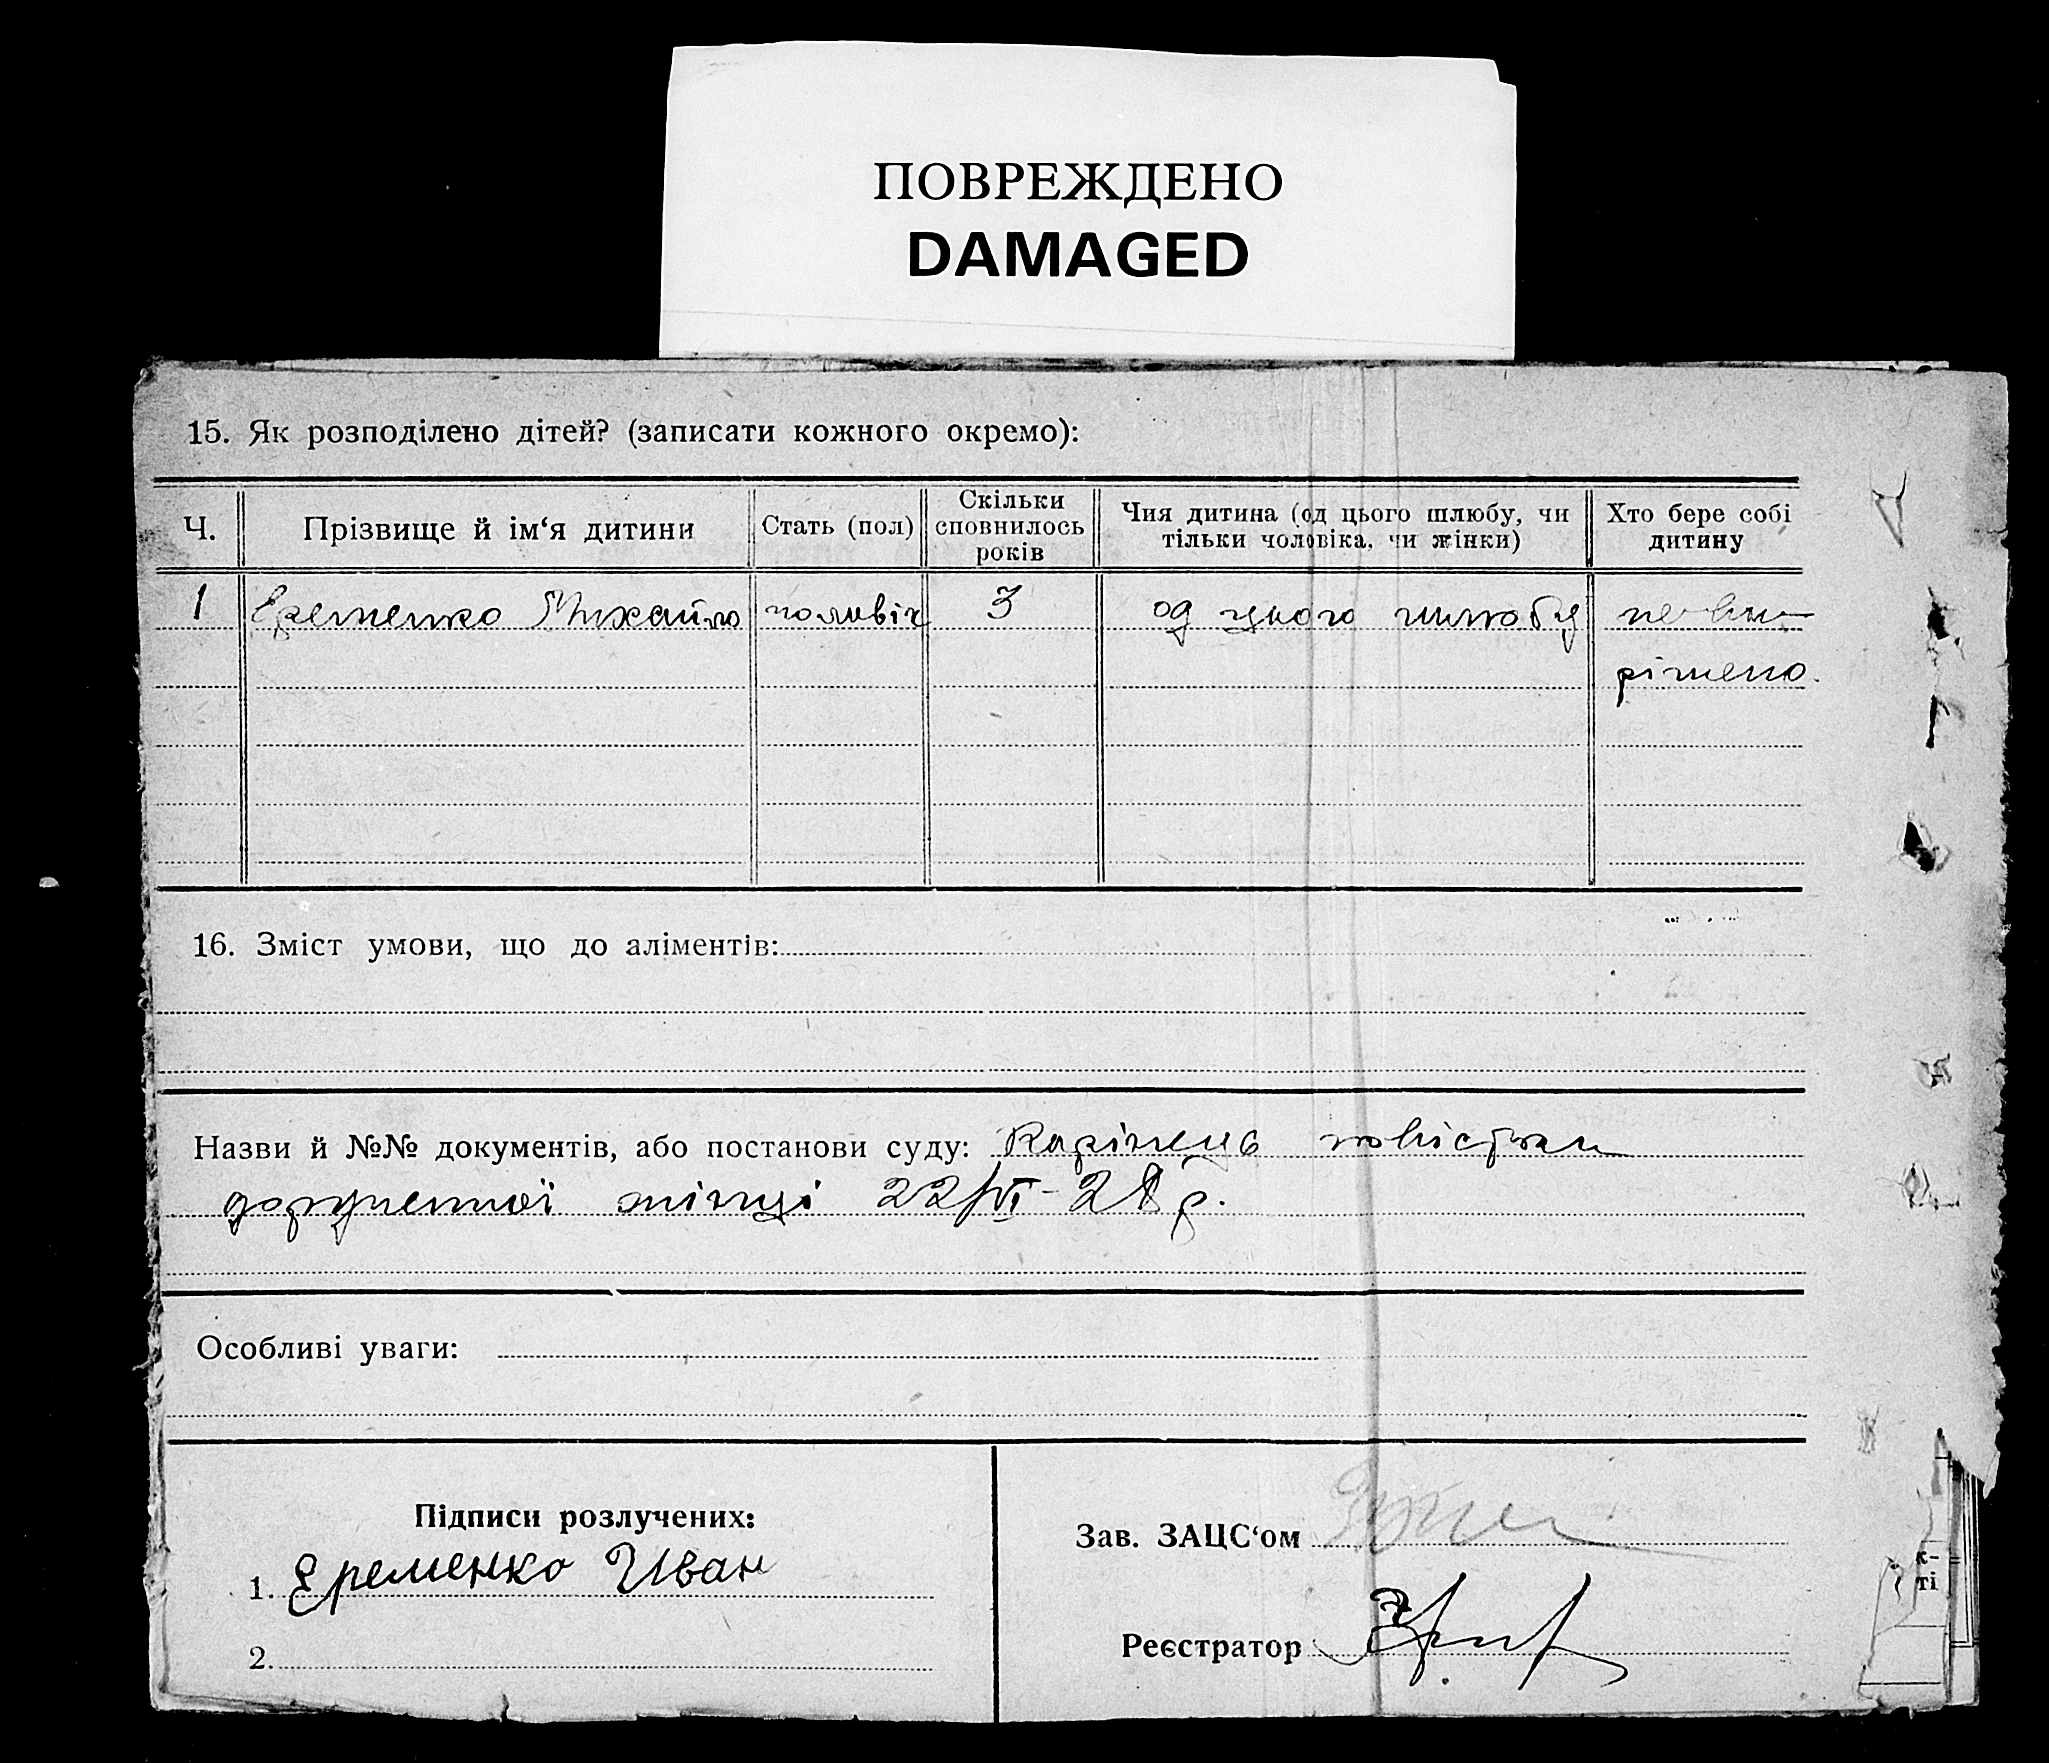 ПОВРЕЖДЕНО
DAMAGED
15. Як розподілено дітей? (записати кожного окремо):
Ч. Прізвище й ім‘я дитини Стать (пол) Скільки сповнилось років Чия дитина (од цього шлюбу, чи тільки чоловіка, чи жінки) Хто бере собі дитину
1 Єременко Михайло чоловіч 3 од цього шлюбу не ви-
рішено.
16. Зміст умови, що до аліментів:
Назви й №№ документів, або постанови суду: Корінець повістки
дорученної жінці 22/VI-28 р.
Особливі уваги:
Підписи розлучених:
1. Єременко Иван
2.
Зав. ЗАЦС‘ом
Реєстратор
к-
ті